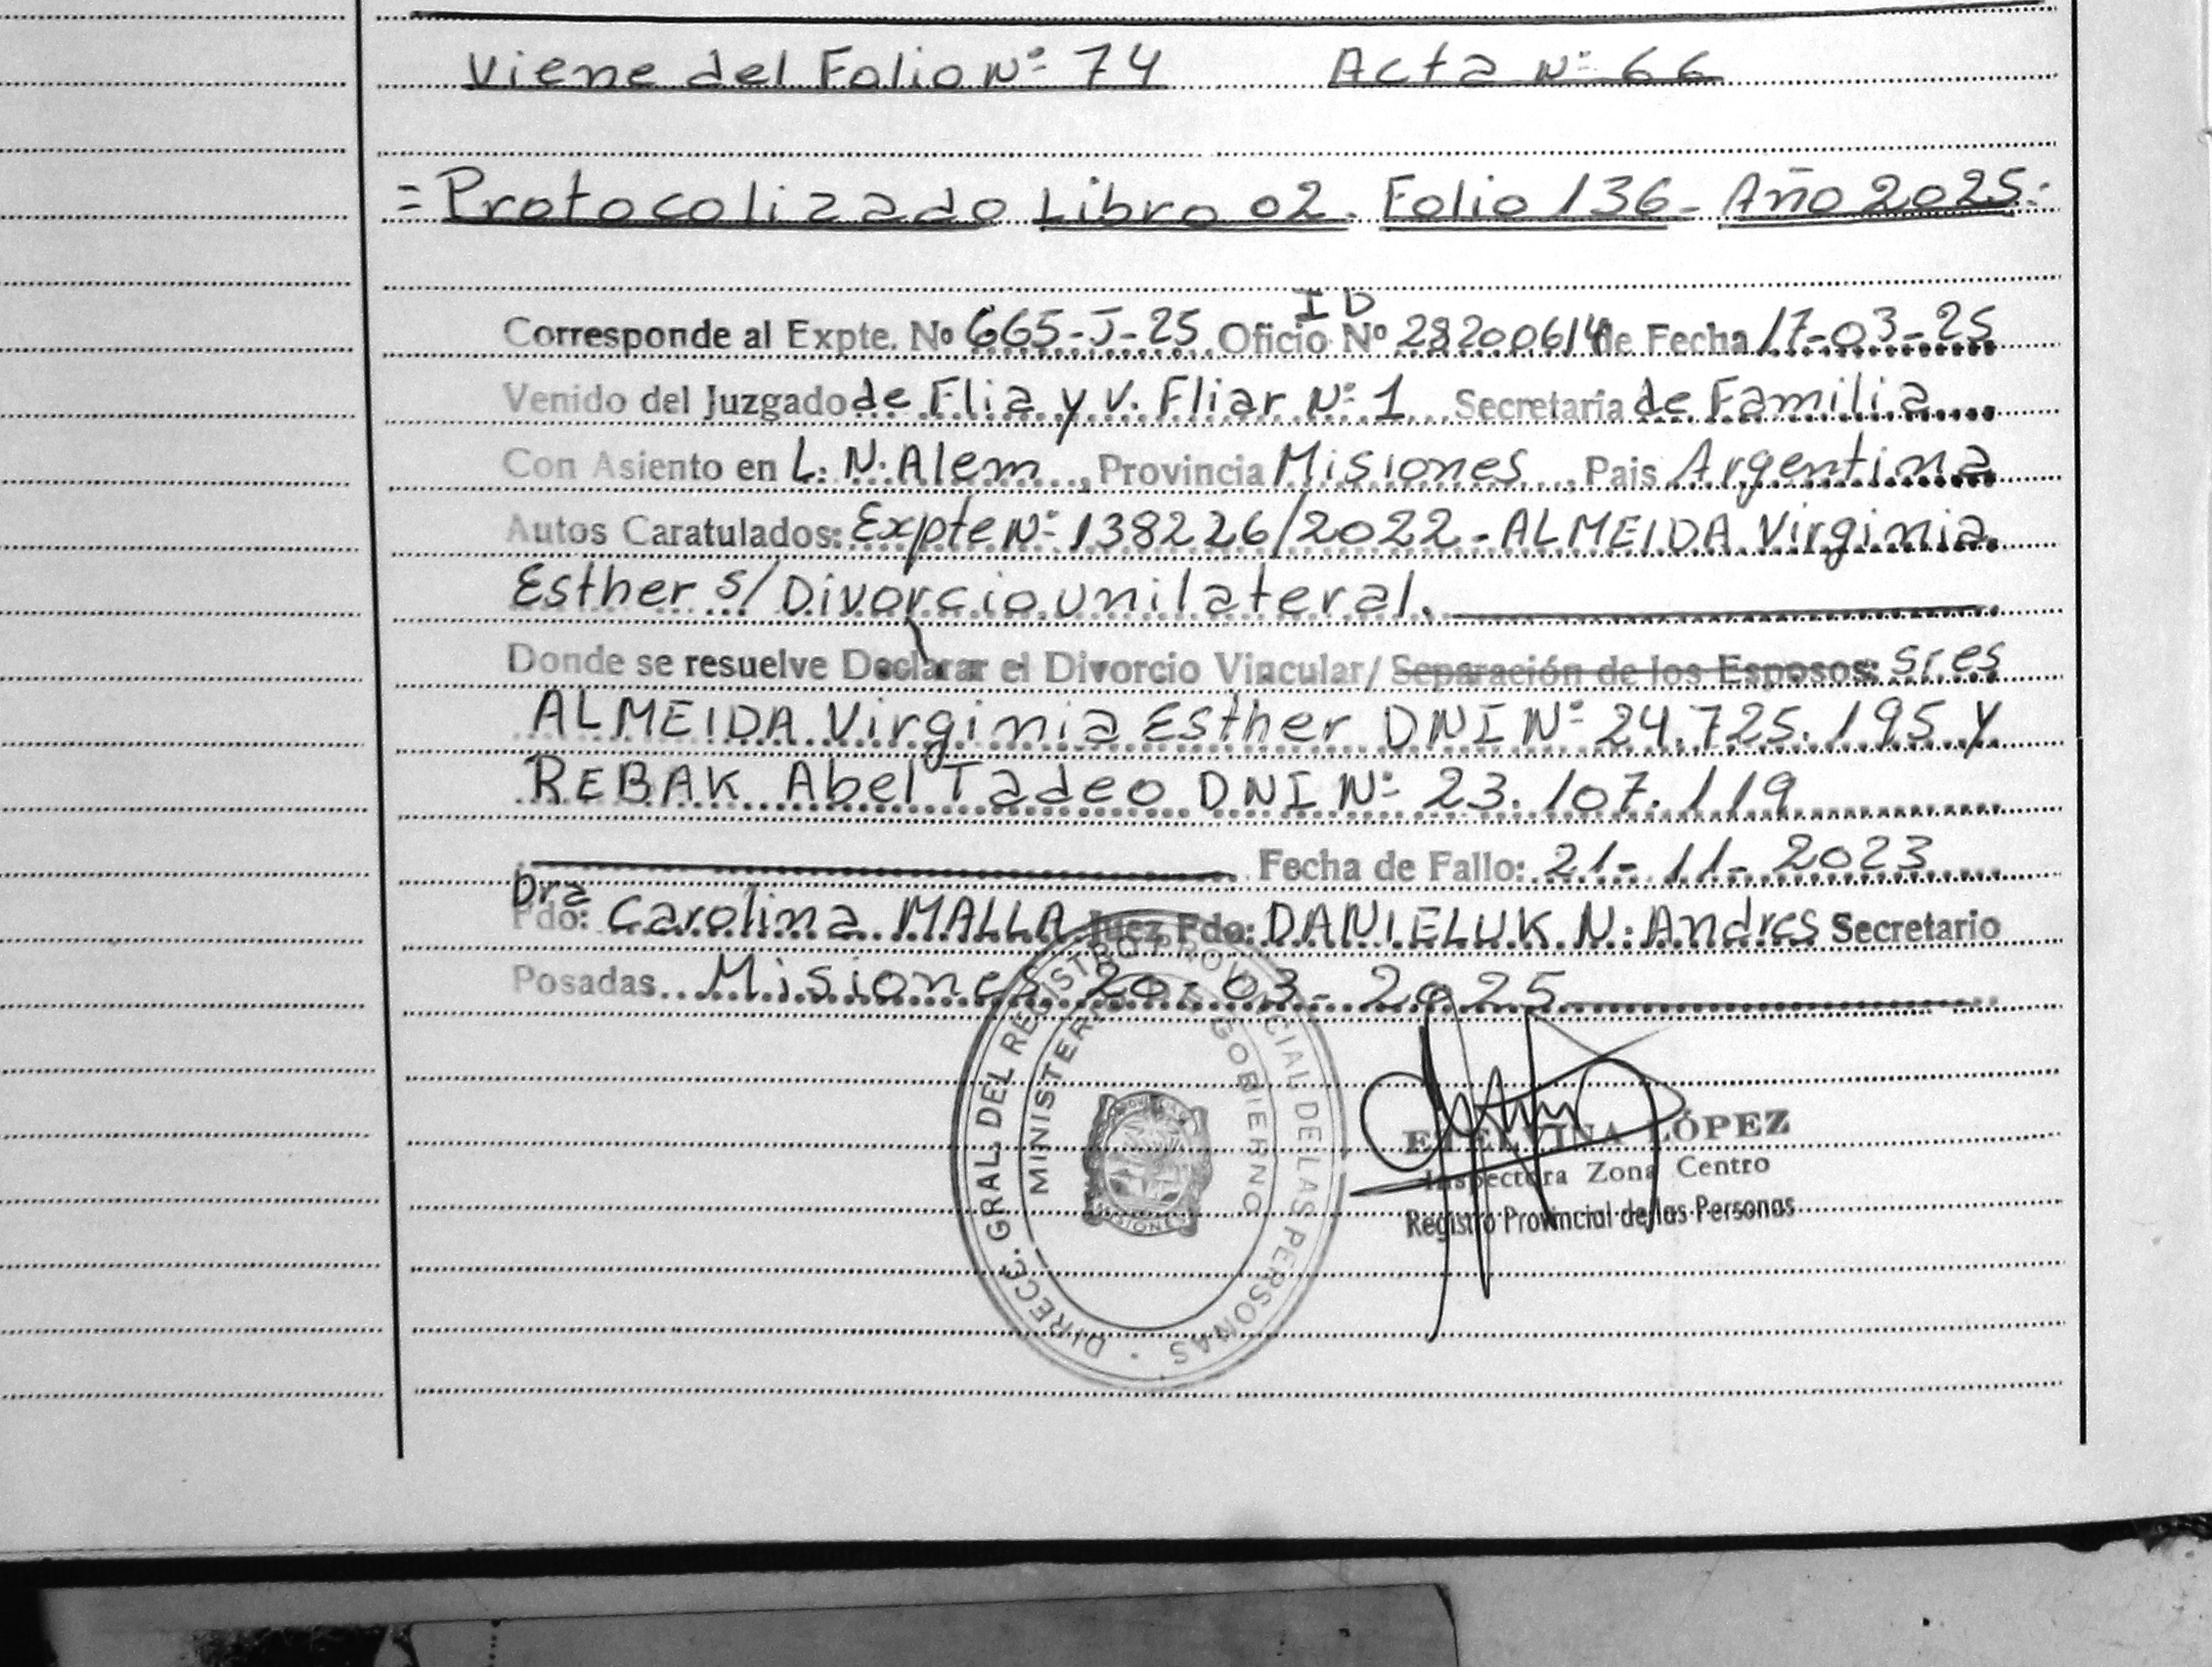 Viene del Folio Nº 74 Acta Nº 66
= Protocolizado Libro 02. Folio 136- Año 2025:
I D
Corresponde al Expte. Nº 665-J-25 Oficio Nº 28200614 de Fecha 17-03-25
Venido del Juzgado de Flia y V. Fliar Nº 1 Secretaria de Familia
Con Asiento en L. N. Alem, Provincia Misiones, Pais Argentina
Autos Caratulados: Expte Nº 138226/2022- ALMEIDA Virginia
Esther s/ Divorcio unilateral.
Donde se resuelve Declarar el Divorcio Vincular/ Separación de los Esposos: sres
ALMEIDA Virginia Esther DNI Nº 24.725.195 y
REBAK Abel Tadeo DNI Nº 23.107.119
Fecha de Fallo: 21-11-2023
Dra
Fdo: Carolina MALLA Juez Fdo: DANIELUK N. Andres Secretario
Posadas Misiones 20-03-2025
DIRECC. GRAL. DEL REGISTRO PROVINCIAL DE LAS PERSONAS
MINISTERIO DE GOBIERNO
MISIONES
ETELVINA LÓPEZ
Inspectora Zona Centro
Registro Provincial de las Personas